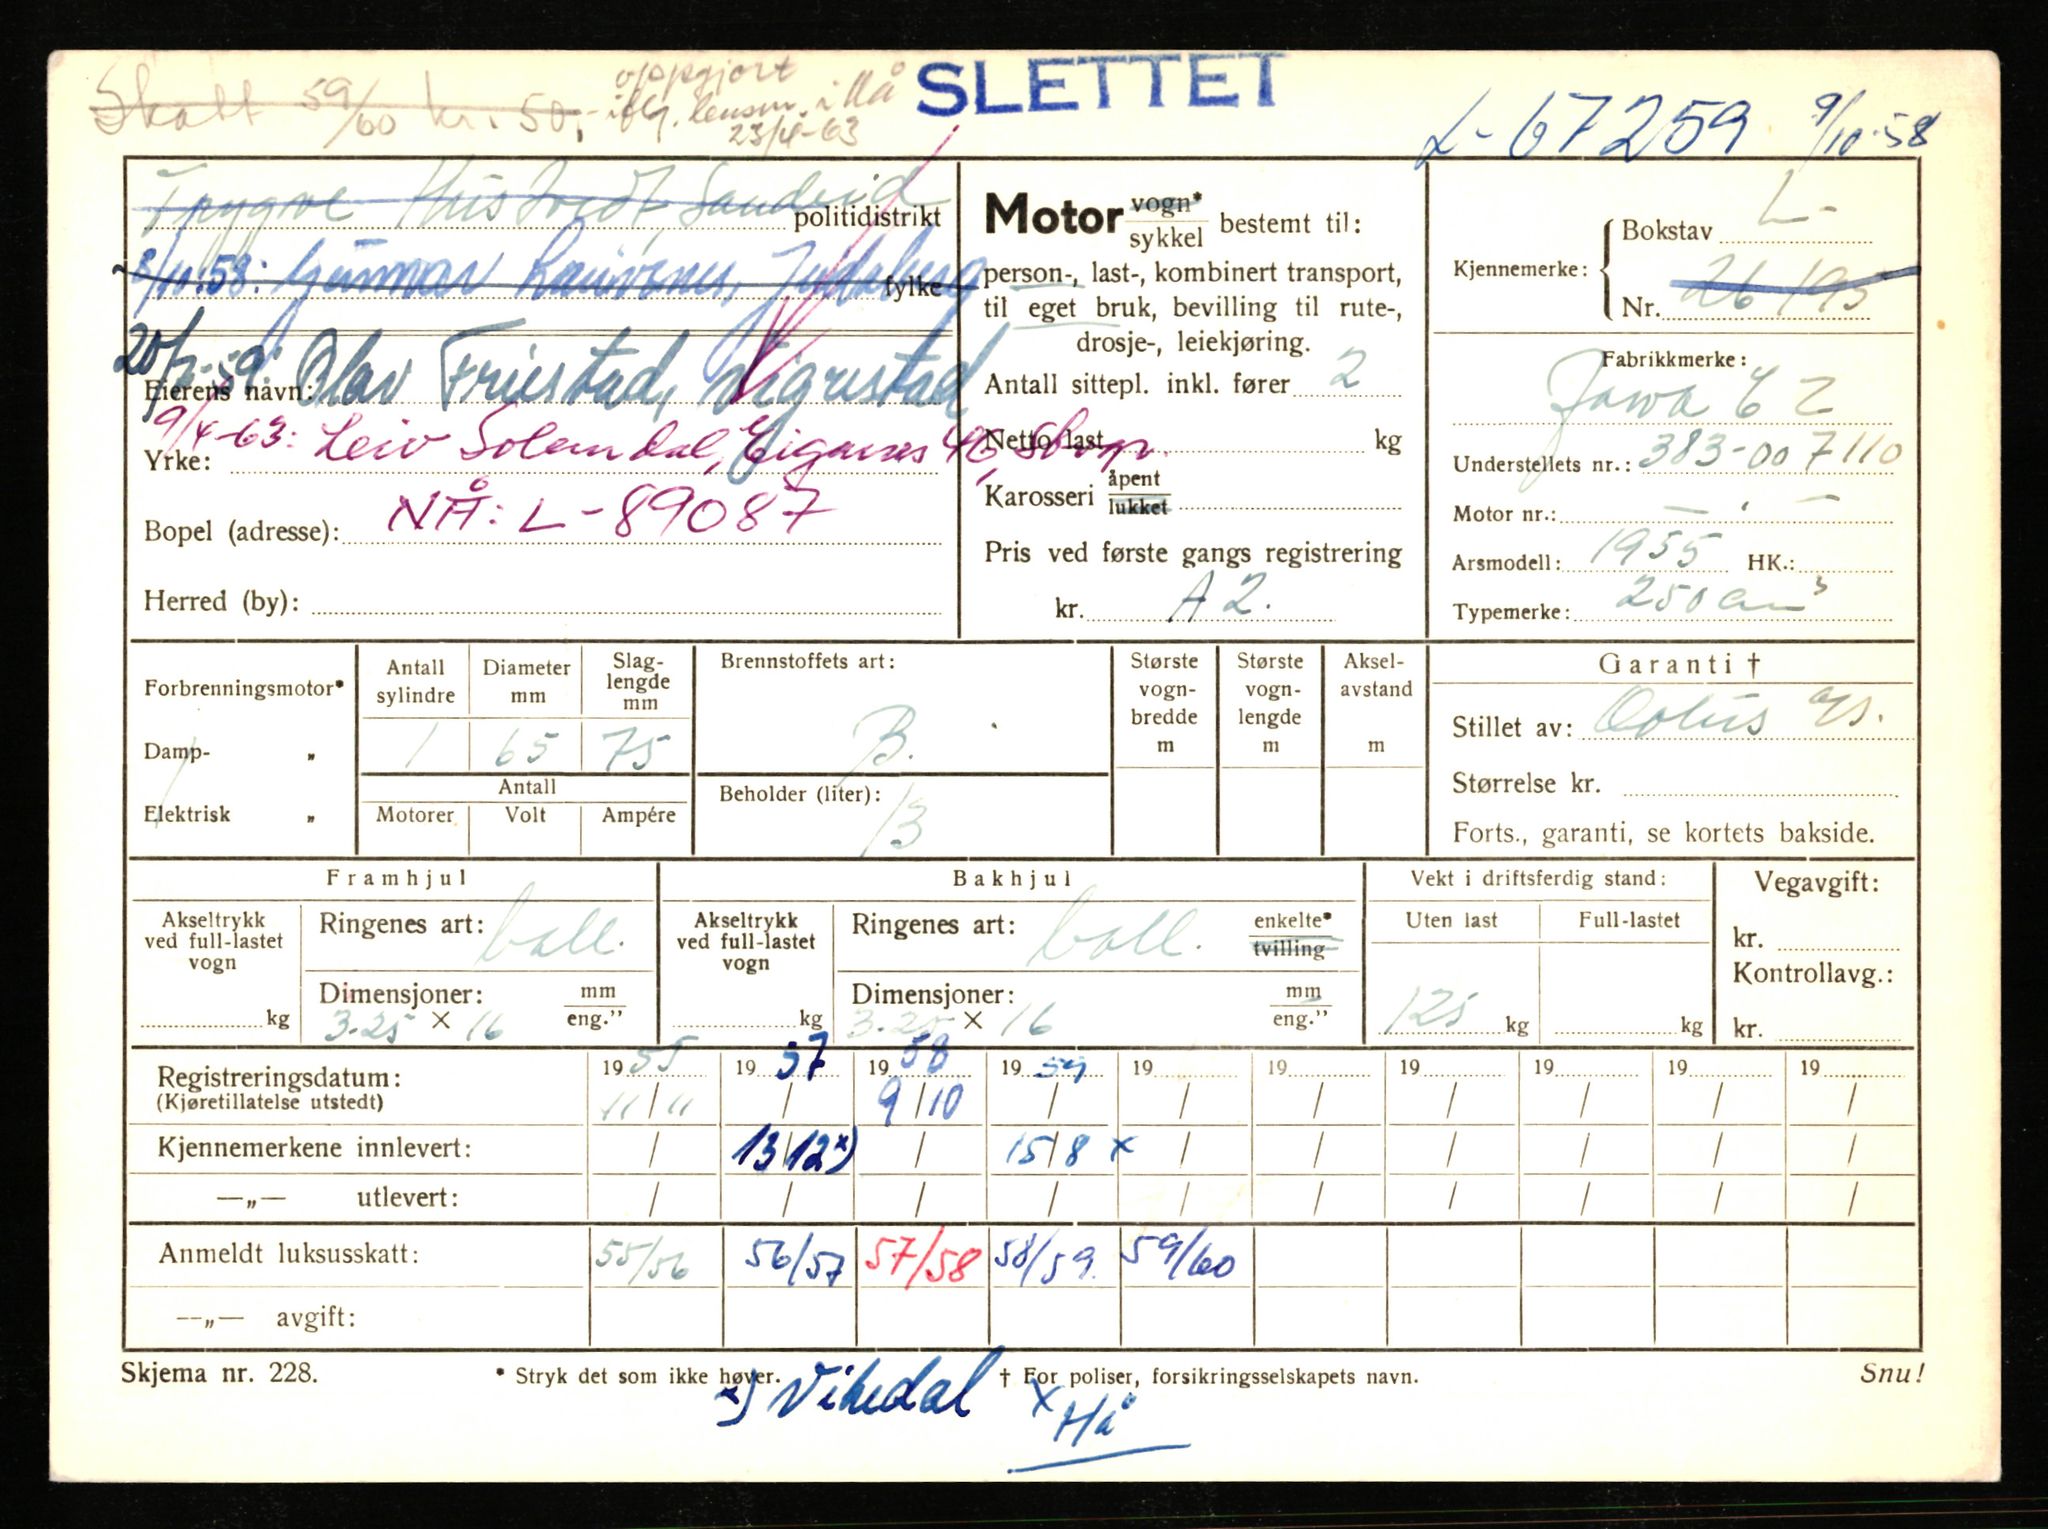 Skatt 59/60 kr. 50,- oppgjort
iflg. lensm. i Hå
23/4-63
SLETTET
L-67259 9/10-58
Trygve Hustvedt, Sandeid
politidistrikt
9/10.58: Gunnar Lauvsnes, Judaberg
fylke
20/2-59: Olav Friestad, Vigrestad
Eierens navn:
9/4-63: Leiv Solemdal, Eiganes 46, Stvgr.
Yrke:
NÅ: L-89087
Bopel (adresse):
Herred (by):
Motor vogn* / sykkel bestemt til:
person-, last-, kombinert transport,
til eget bruk, bevilling til rute-,
drosje-, leiekjøring.
Antall sittepl. inkl. fører 2
Netto last kg
Karosseri åpent / lukket
Pris ved første gangs registrering
kr. A2.
Kjennemerke: Bokstav L-
Nr. 26195
Fabrikkmerke:
Jawa CZ
Understellets nr.: 383-007110
Motor nr.: — " —
Arsmodell: 1955 HK.:
Typemerke: 250 cm3
Forbrenningsmotor*
Damp- „
Elektrisk „
Antall sylindre 1
Diameter mm 65
Slaglengde mm 75
Antall
Motorer Volt Ampére
Brennstoffets art:
B.
Beholder (liter):
13
Største vognbredde m
Største vognlengde m
Akselavstand m
Garanti †
Stillet av: a/s.
Størrelse kr.
Forts., garanti, se kortets bakside.
Framhjul
Akseltrykk ved full-lastet vogn kg
Ringenes art: ball.
Dimensjoner: mm / eng.”
3.25 × 16
Bakhjul
Akseltrykk ved full-lastet vogn kg
Ringenes art: ball. enkelte* / tvilling
Dimensjoner: mm / eng.”
3.25 × 16
Vekt i driftsferdig stand:
Uten last Full-lastet
125 kg kg
Vegavgift:
kr.
Kontrollavg.:
kr.
Registreringsdatum: 1955 1957 1958 1959 19 19 19 19 19 19
(Kjøretillatelse utstedt) 11/11 / 9/10 / / / / / / /
Kjennemerkene innlevert: / 13/12 x) / 15/8 x / / / / / /
—„— utlevert: / / / / / / / / / /
Anmeldt luksusskatt: 55/56 56/57 57/58 58/59. 59/60
—„— avgift:
Skjema nr. 228. * Stryk det som ikke høver. † For poliser, forsikringsselskapets navn. Snu!
x) Vikedal x Hå